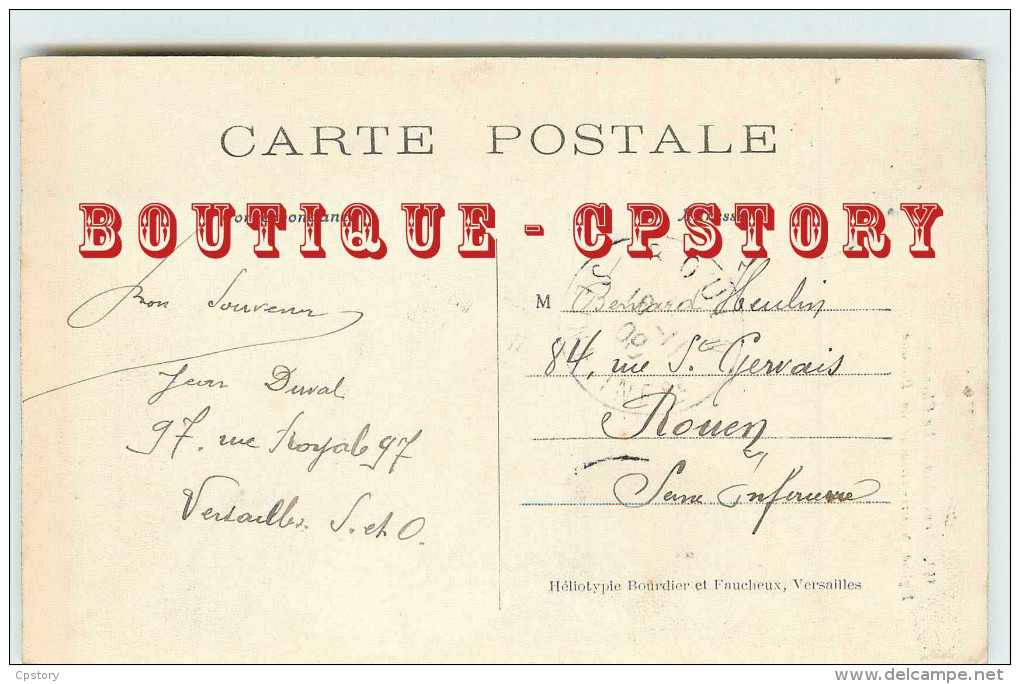 CARTE POSTALE
BOUTIQUE - CPSTORY
Bon Souvenir
Jean Duval
97, rue Royale 97
Versailles. S. et O.
M Bernard Heulin
84, rue St Gervais
Rouen
Seine Inférieure
Héliotypie Bourdier et Faucheux, Versailles
Cpstory
www.delcampe.net